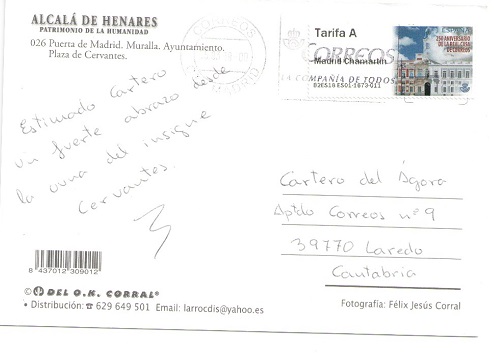 ALCALÁ DE HENARES
PATRIMONIO DE LA HUMANIDAD
026 Puerta de Madrid. Muralla. Ayuntamiento.
Plaza de Cervantes.
CORREOS
MADRID
Tarifa A
CORREOS
Madrid Chamartín
LA COMPAÑÍA DE TODOS
ESPAÑA
250 ANIVERSARIO
DE LA REAL CASA
DE CORREOS
Estimado Cartero
un fuerte abrazo desde
la cuna del insigne
Cervantes.
Cartero del Ágora
Aptdo Correos nº 9
39770 Laredo
Cantabria
8 437012 309012
© DEL O.K. CORRAL®
• Distribución: ☎ 629 649 501 Email: larrocdis@yahoo.es
Fotografía: Félix Jesús Corral